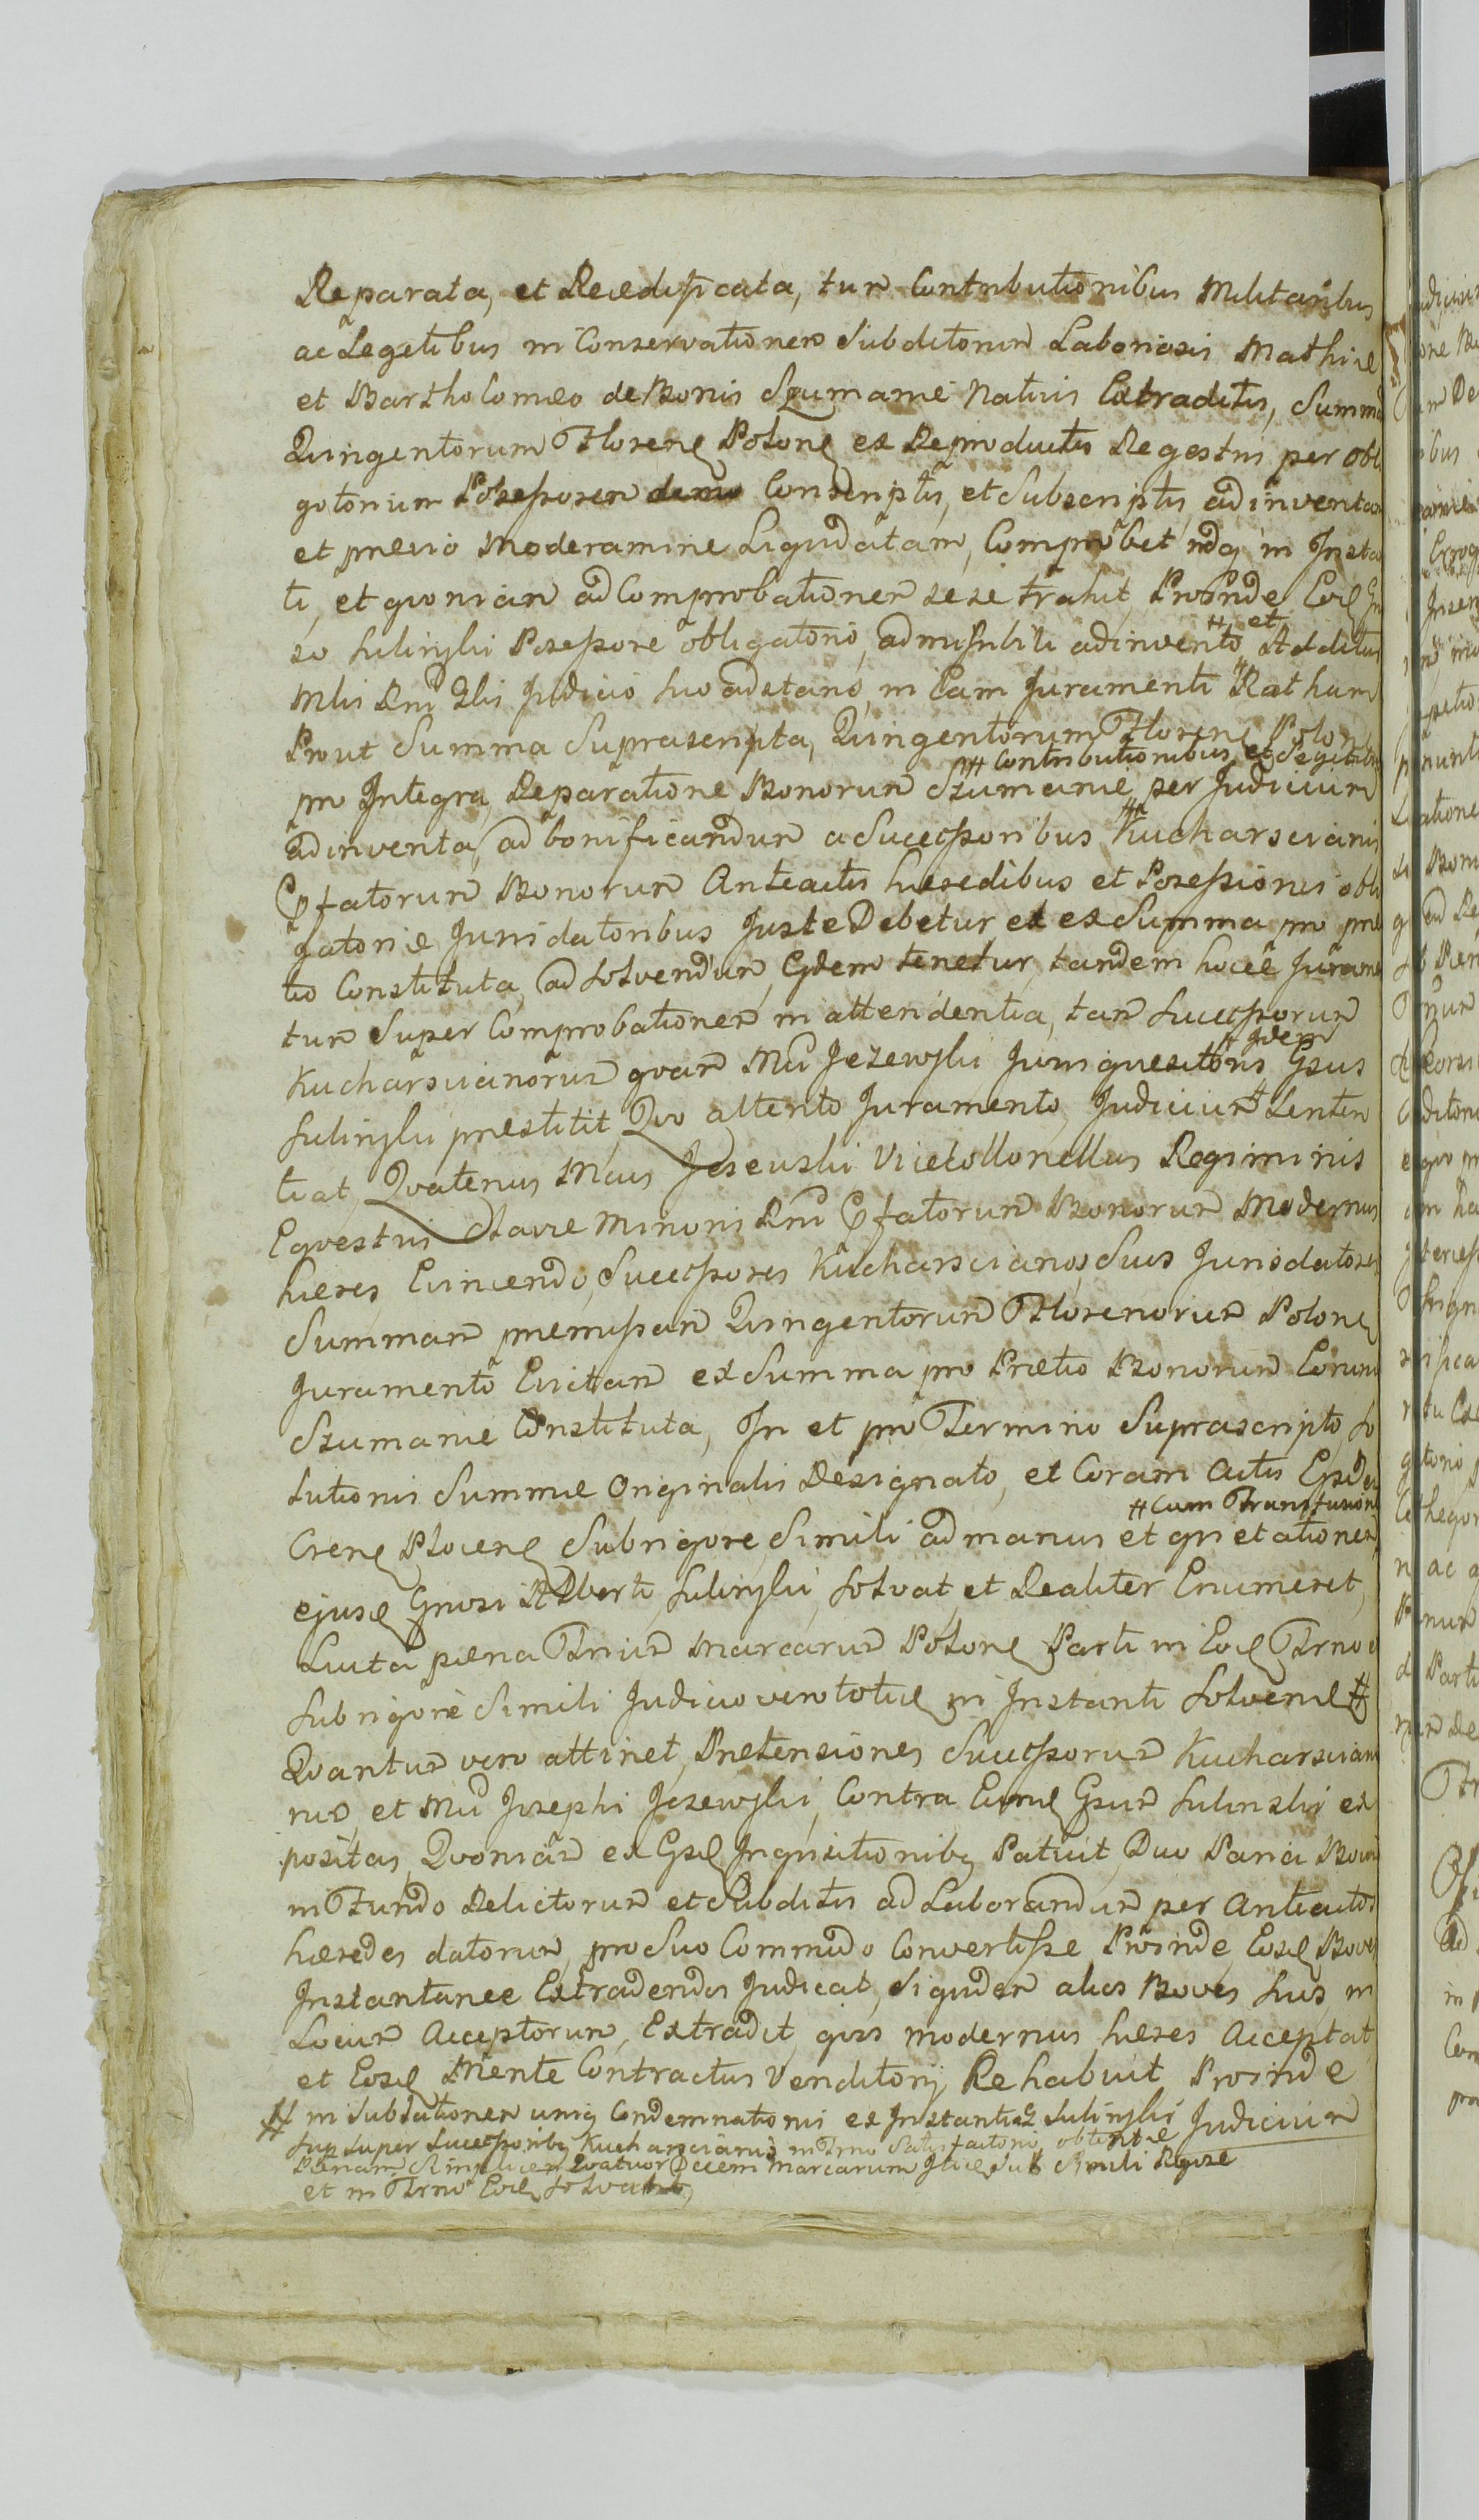 Reparata, et Reædificata, tum Contributionibus Militaribus
ac Segetibus in Conservationem Subditorum Laboriosis Mathiæ
et Bartholomeo de Bonis Szumanie Nativis Extraditis, Summa
Quingentorum Floren Polon ex Reproductis Regestris per obli
gatorium Possessorem Conscriptis, et Subscriptis, adinventam
et prævio Moderamine Liquidatam, Comprobet in Instan
ti, et quoniam ad Comprobationem sese trahit, Proinde
so Sulinskii Possessore obligatorio, admissibili adinvento # et
Mtis Rni Judicio suo adstano, in Eam Juramenti Rotham
Prout Summa Suprascripta, Quingentorum Floren Polon
# Contributionibus et Segetibus
pro Integra Reparatione Bonorum Szumanie # per Judicium
adinventa, ad bonificandum a Successoribus Kucharscianis
Pfatorum Bonorum Anteactis hæredibus et Possessionis obli
gatoriæ Jurisdatoribus Juste Debetur, et ex Summa pro præ
tio Constituta, ad Solvendum Eidem tenetur, tandem hocce Juramen
tum Super Comprobationem in attendentia, tam Successorum
# Idem
Kucharscianorum quam Mci Jezewskii Jurisquesitoris Gsus
Sulinskii præstitit Quo attento Juramento, Judicium # Senten
tiat, Quatenus Mcus Jezewski Vicecollonellus Regiminis
Equestris Rni Pfatorum Bonorum Modernus
hæres Evincendo, Successores Kucharscianos, Suos Jurisdatores
Summam præmissam Quingentorum Florenorum Polon
Juramento Evictam ex Summa pro Prætio Bonorum Eorum
Szumanie Constituta, In et pro Termino Suprascripto, So
lutionis Summæ Originalis Designato, et Coram Actis
# Cum Transfusione
Cren Plocen Sub rigore Simili ad manus et quietationem
ejusd Gnosi Alberti Sulinskii, Solvat, et Realiter Enumeret,
Luita pæna Trium Marcarum Polon Parti in Eod Trno
Sub rigore Simili Judicio vero totid in Instanti Solven #
Quantum vero attinet, Prætensiones Successorum Kucharsciano
rum, et Mci Josephi Jezewskii, Contra Eund Gsum Sulinski ex
positas, Quoniam ex Inquisitionibq Patuit, Duo Paria Boum
in Fundo Relictorum et Subditis ad Laborandum per Anteactos
hæredes datorum, pro Suo Commodo Convertisse Proinde, Eosd Boves
Instantanee Extradendos Judicat, Siquidem alios Boves hus in
Locum Acceptorum, Extradit, quos modernus hæres Acceptat,
et Eosd Mente Contractus Venditorij Rehabuit Proinde
# in Sublationem uniq Condemnationis ex Instantia Sulinskii Judicium
sup super Successoribq Kucharscianis in Trno Satisfactionis obtentæ
Pænam Simplicem Quatuordecem Marcarum Sub Simili Rigore
et in Trno Eod Solvant,